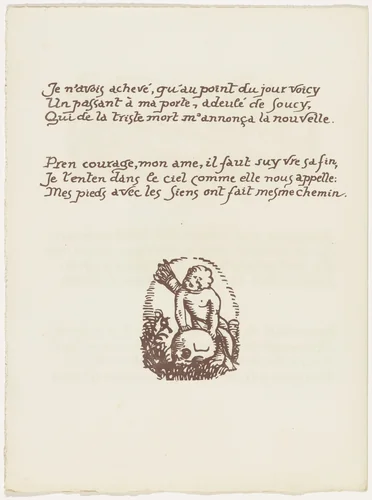 Je n'avois achevé, qu'au point du jour voicy
Un passant à ma porte, adeulé de soucy,
Qui de la triste mort m'annonça la nouvelle.
Pren courage, mon ame, il faut suyvre sa fin,
Je l'enten dans le ciel comme elle nous appelle:
Mes pieds avec les siens ont fait mesme chemin.